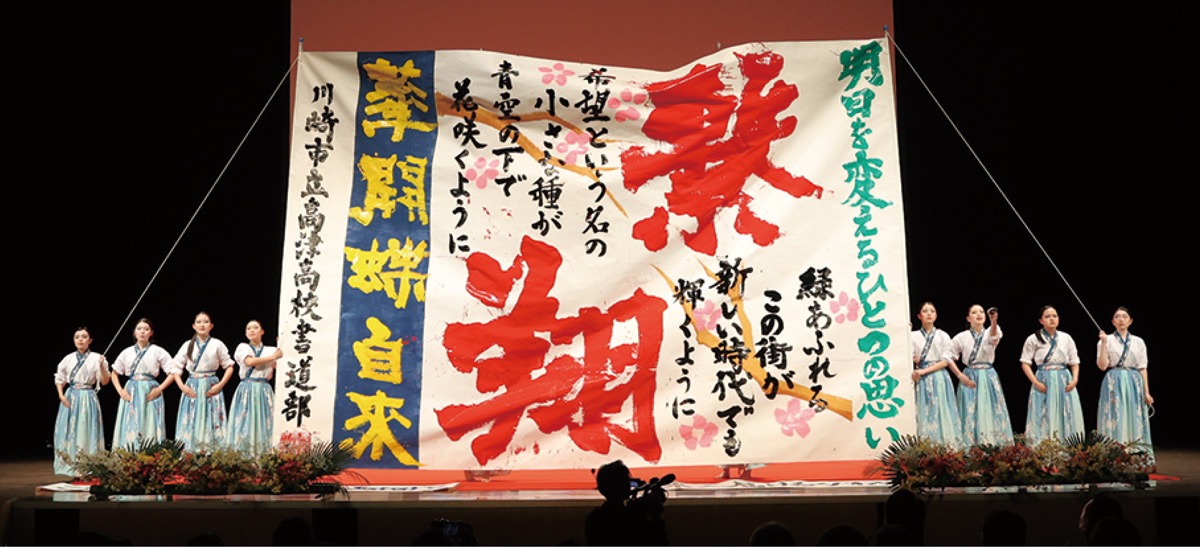 明日を変えるひとつの思い
緑あふれる
この街が
新しい時代でも
輝くように
飛翔
希望という名の
小さな種が
青空の下で
花咲くように
華開蝶自來
川崎市立高津高校書道部